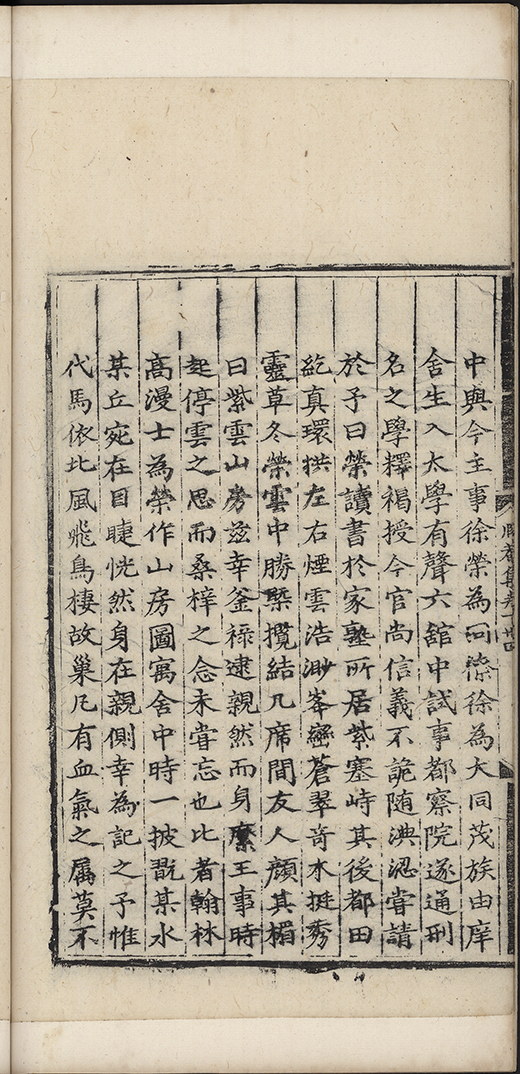 中興今主事徐榮為同寮徐為大同茂族由庠
舍生入太學有聲六舘中試事都察院遂通刑
名之學釋褐授今官尚信義不詭随淟涊甞請
於予曰榮讀書於家塾所居紫塞峙其後都田
紇真環拱左右煙雲浩渺峯巒蒼翠竒木挺秀
靈草冬榮雲中勝槩攬結几席間友人顔其楣
曰紫雲山房兹幸釜祿逮親然而身縻王事時
起停雲之思而桑梓之念未甞忘也比者翰林
高漫士為榮作山房圖寓舍中時一披翫某水
某丘宛在目睫恍然身在親側幸為記之予惟
代馬依北風飛鳥棲故巢凡有血氣之属莫不